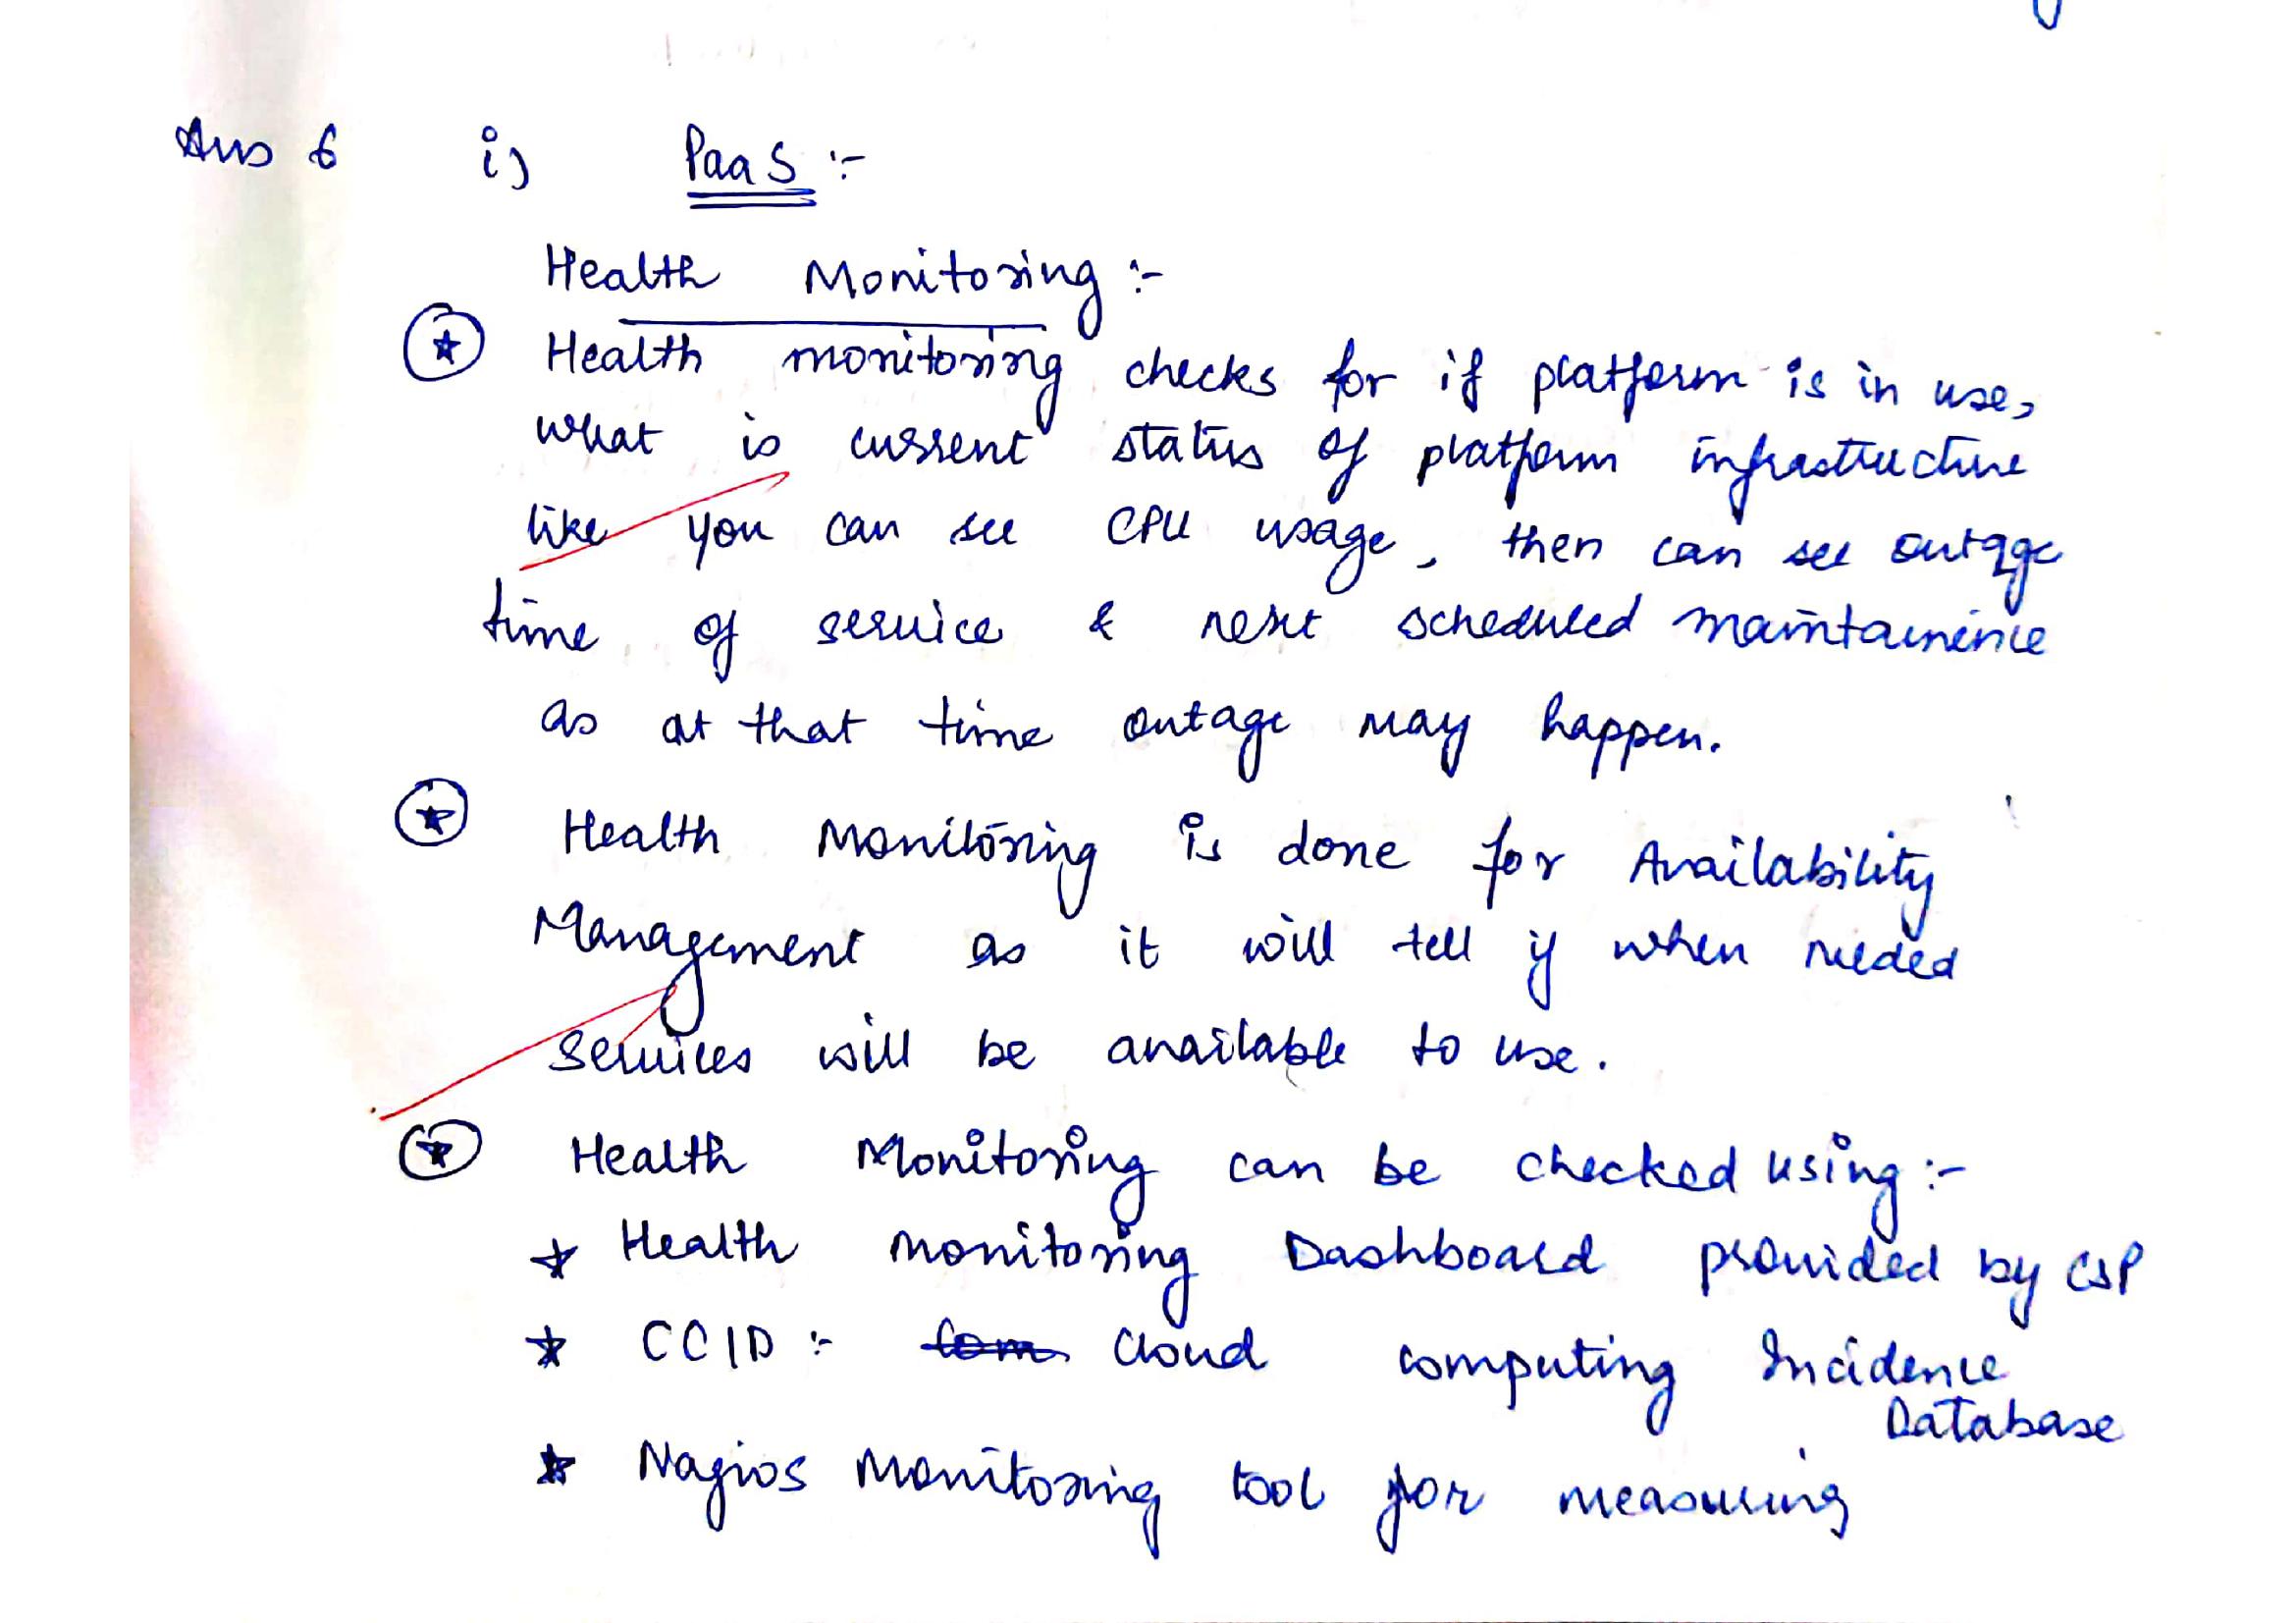 Ans 6 i) PaaS :-
Health Monitoring :-
Health monitoring checks for if platform is in use,
what is current status of platform infrastructure
like you can see CPU usage, then can see outage
time of service & next scheduled maintainence
as at that time outage may happen.
Health Monitoring is done for Availability
Management as it will tell if when needed
services will be available to use.
Health Monitoring can be checked using :-
Health monitoring Dashboard provided by CSP
CCID :- Com Cloud computing Incidence
Database
Nagios Monitoring tool for measuring